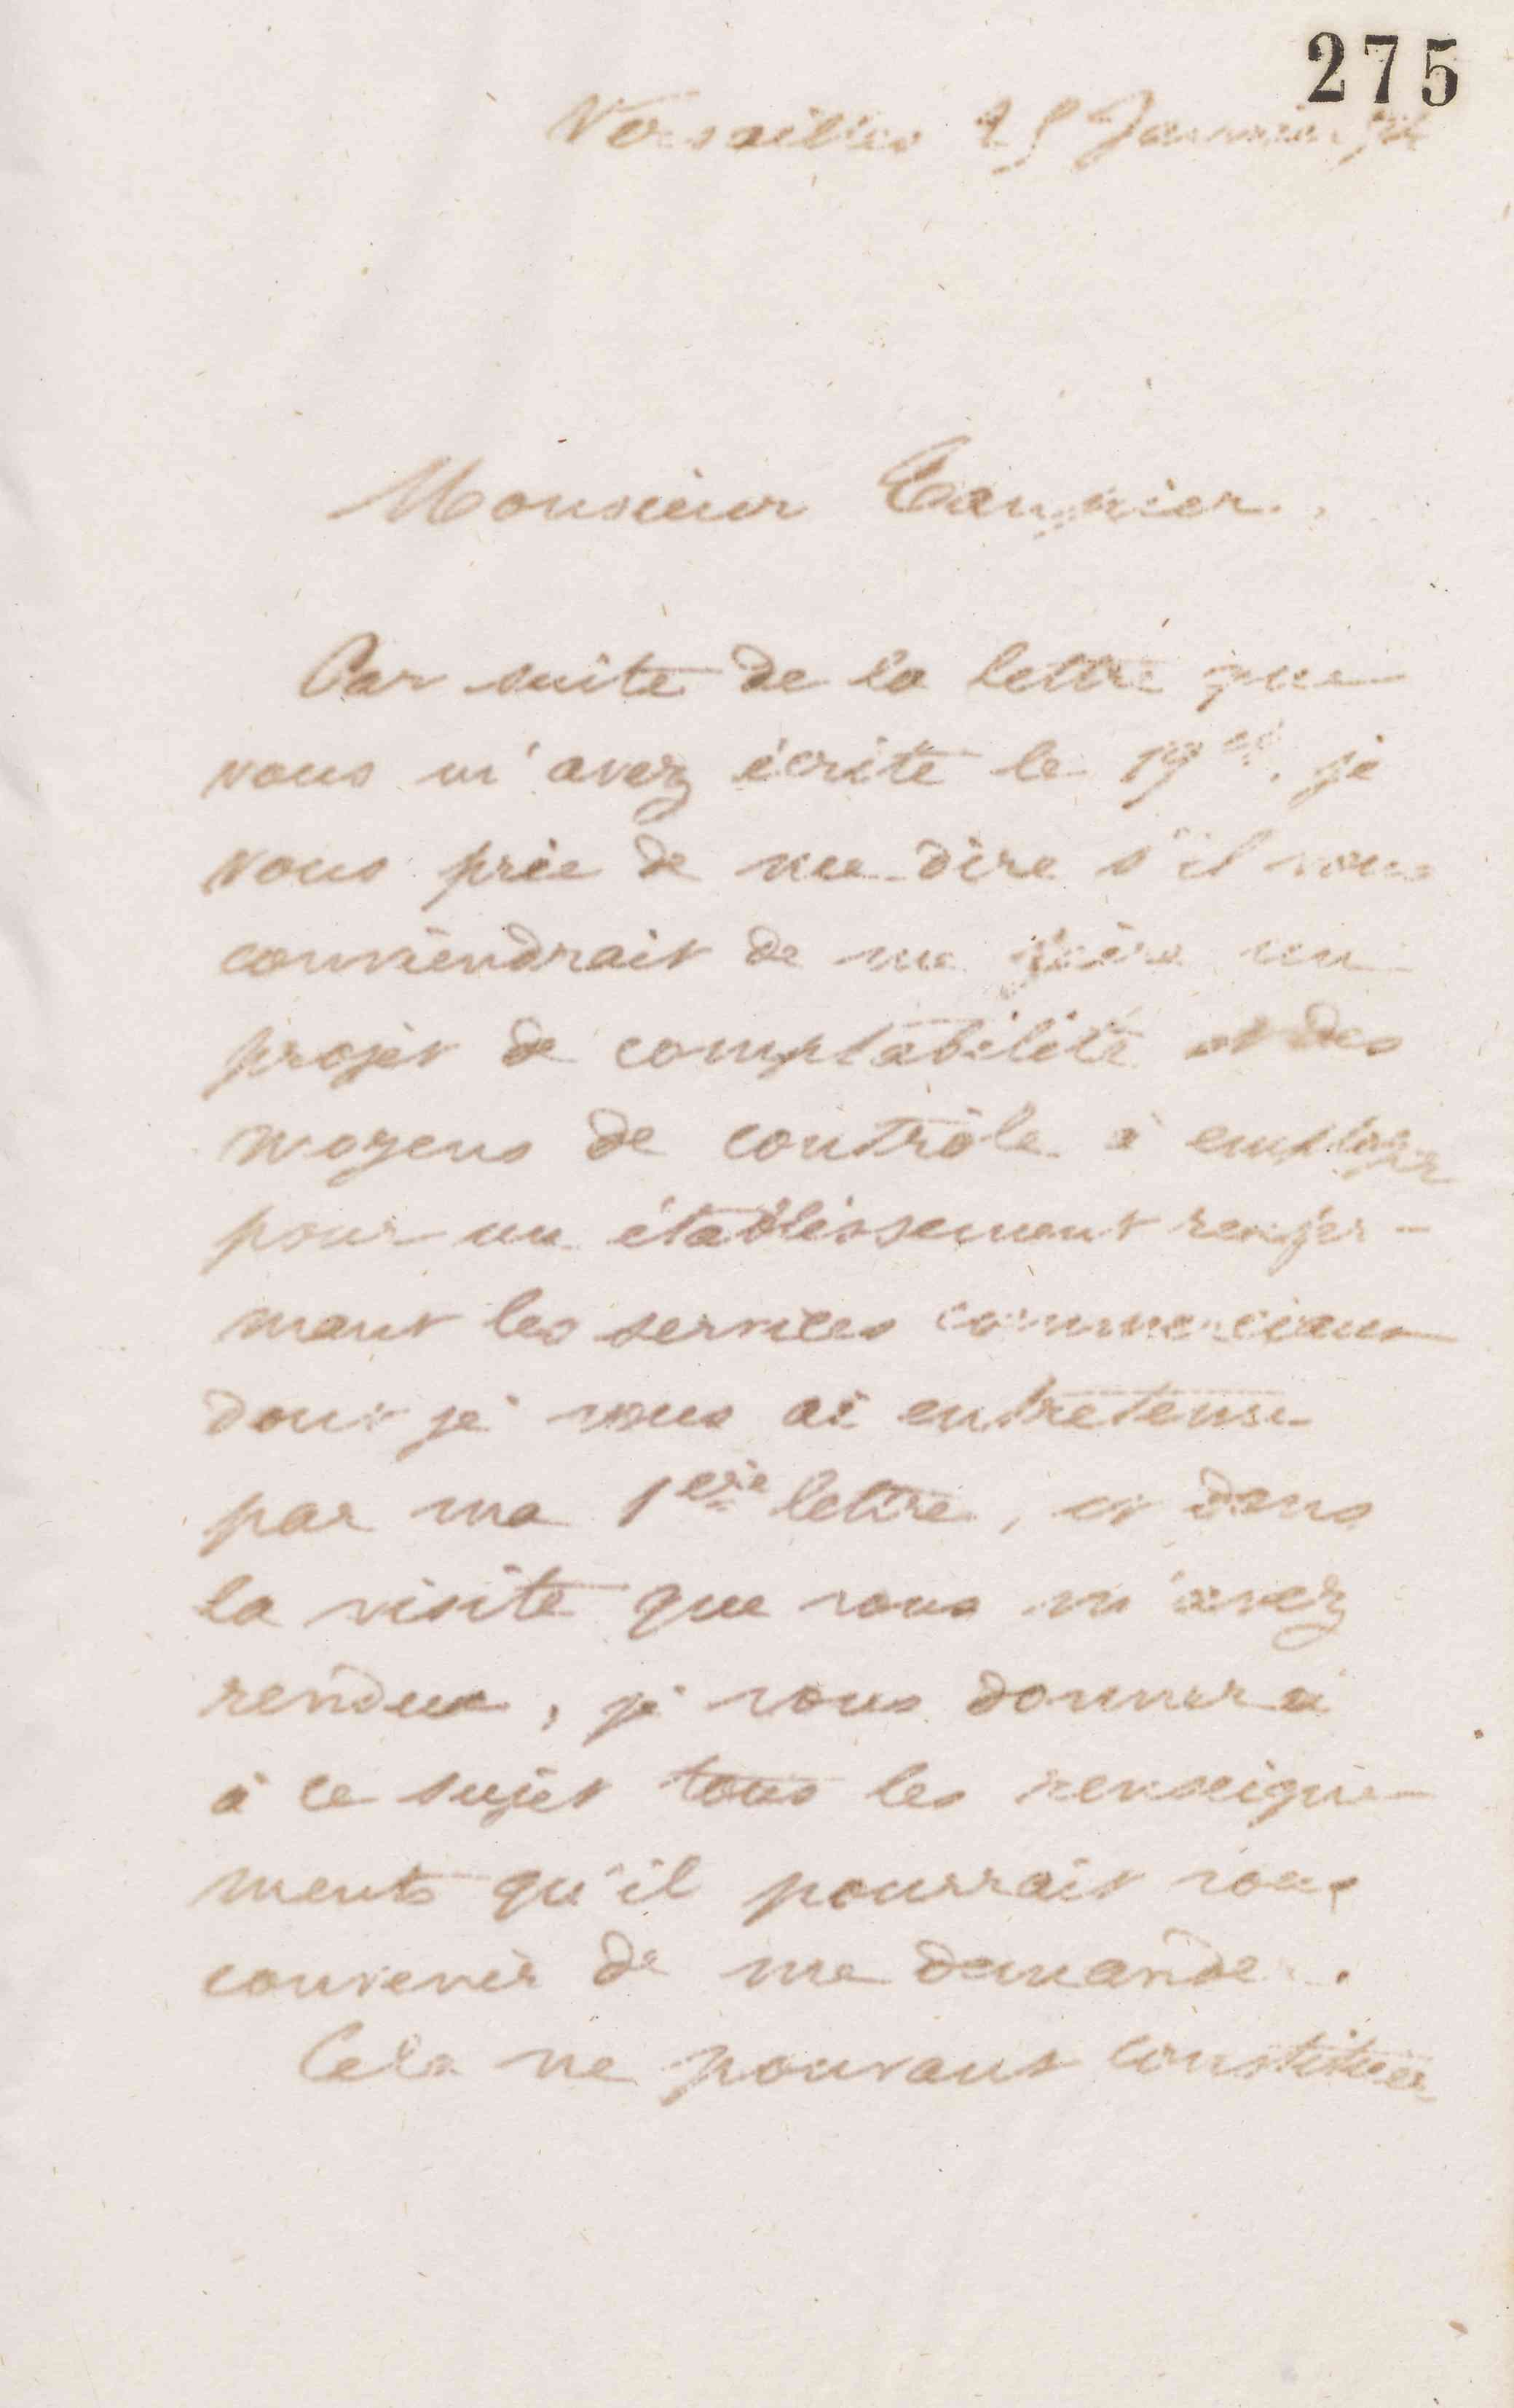 275
Versailles 25 Janvier 74
Monsieur
Par suite de la lettre que
vous m'avez écrite le 19 ct. je
vous prie de me dire s'il vous
conviendrait de me faire un
projet de comptabilité et des
moyens de contrôle à employer
pour un établissement renfer-
mant les services commerciaux
dont je vous ai entretenu
par ma 1ère lettre, et dans
la visite que vous m'avez
rendue, je vous donnerai
à ce sujet tous les renseigne-
ments qu'il pourrait vous
convenir de me demander.
Cela ne pouvant constituer